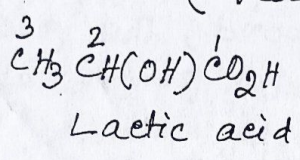 3 2 1
CH3 CH(OH) CO2H
Lactic acid